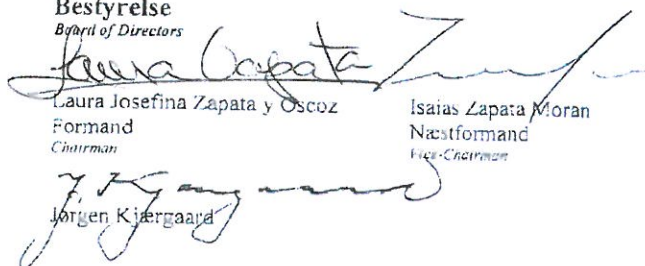 Bestyrelse
Board of Directors
Laura Zapata
Laura Josefina Zapata y Oscoz
Formand
Chairman
Isaias Zapata Moran
Næstformand
Vice-Chairman
J Kjærgaard
Jørgen Kjærgaard